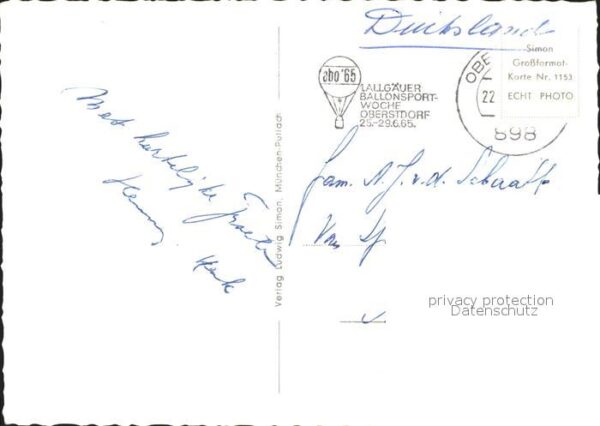 Duitsland
Simon
Großformat-
Karte Nr. 1153
ECHT PHOTO
OBE
22
898
abo '65
1.ALLGÄUER
BALLONSPORT-
WOCHE
OBERSTDORF
25.-29.6.65.
Met hartelijke Groeten
Henk
Verlag Ludwig Simon, München-Pullach
Fam. A.J. v. d. Schaaff
privacy protection
Datenschutz